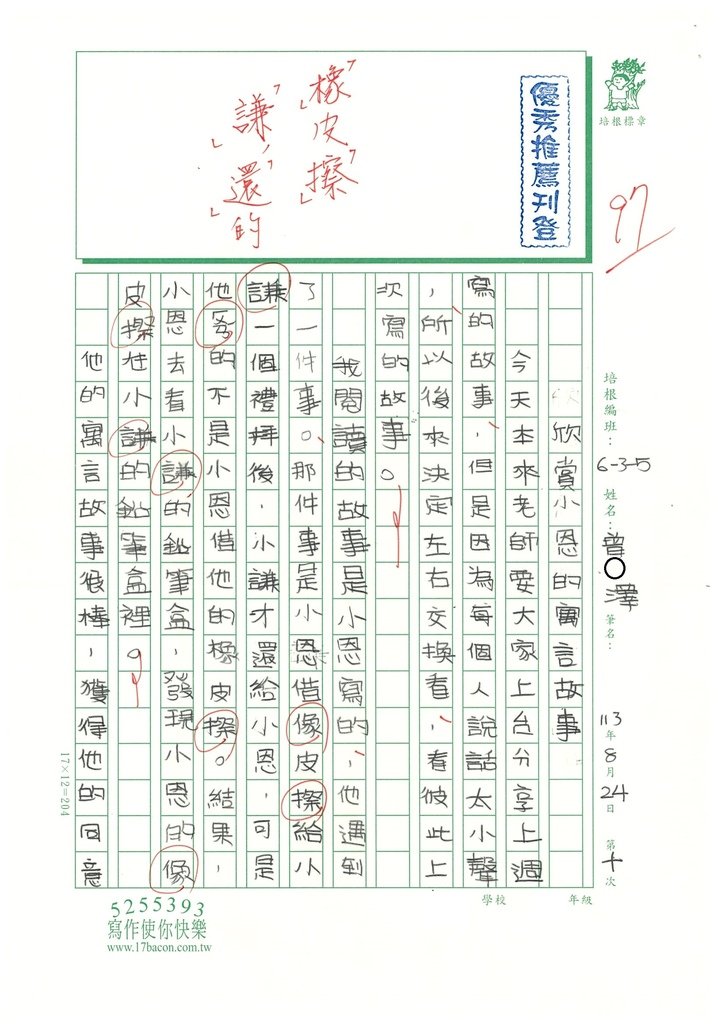 培根標章
97
優秀推薦刊登
「橡」皮「擦」
「謙」，「還」的
培根編班：6-3-5 姓名：曾○澤 筆名：
113年8月24日 第十次
學校 年級
欣賞小恩的寓言故事
今天本來老師要大家上台分享上週
寫的故事，但是因為每個人說話太小聲
，所以後來決定左右交換看，看彼此上
次寫的故事。
我閱讀的故事是小恩寫的，他遇到
了一件事。那件事是小恩借像皮擦給小
謙一個禮拜後，小謙才還給小恩，可是
他的不是小恩借他的橡皮擦。結果，
小恩去看小謙的鉛筆盒，發現小恩的像
皮擦在小謙的鉛筆盒裡。
他的寓言故事很棒，獲得他的同意
17×12=204
5255393
寫作使你快樂
www.17bacon.com.tw